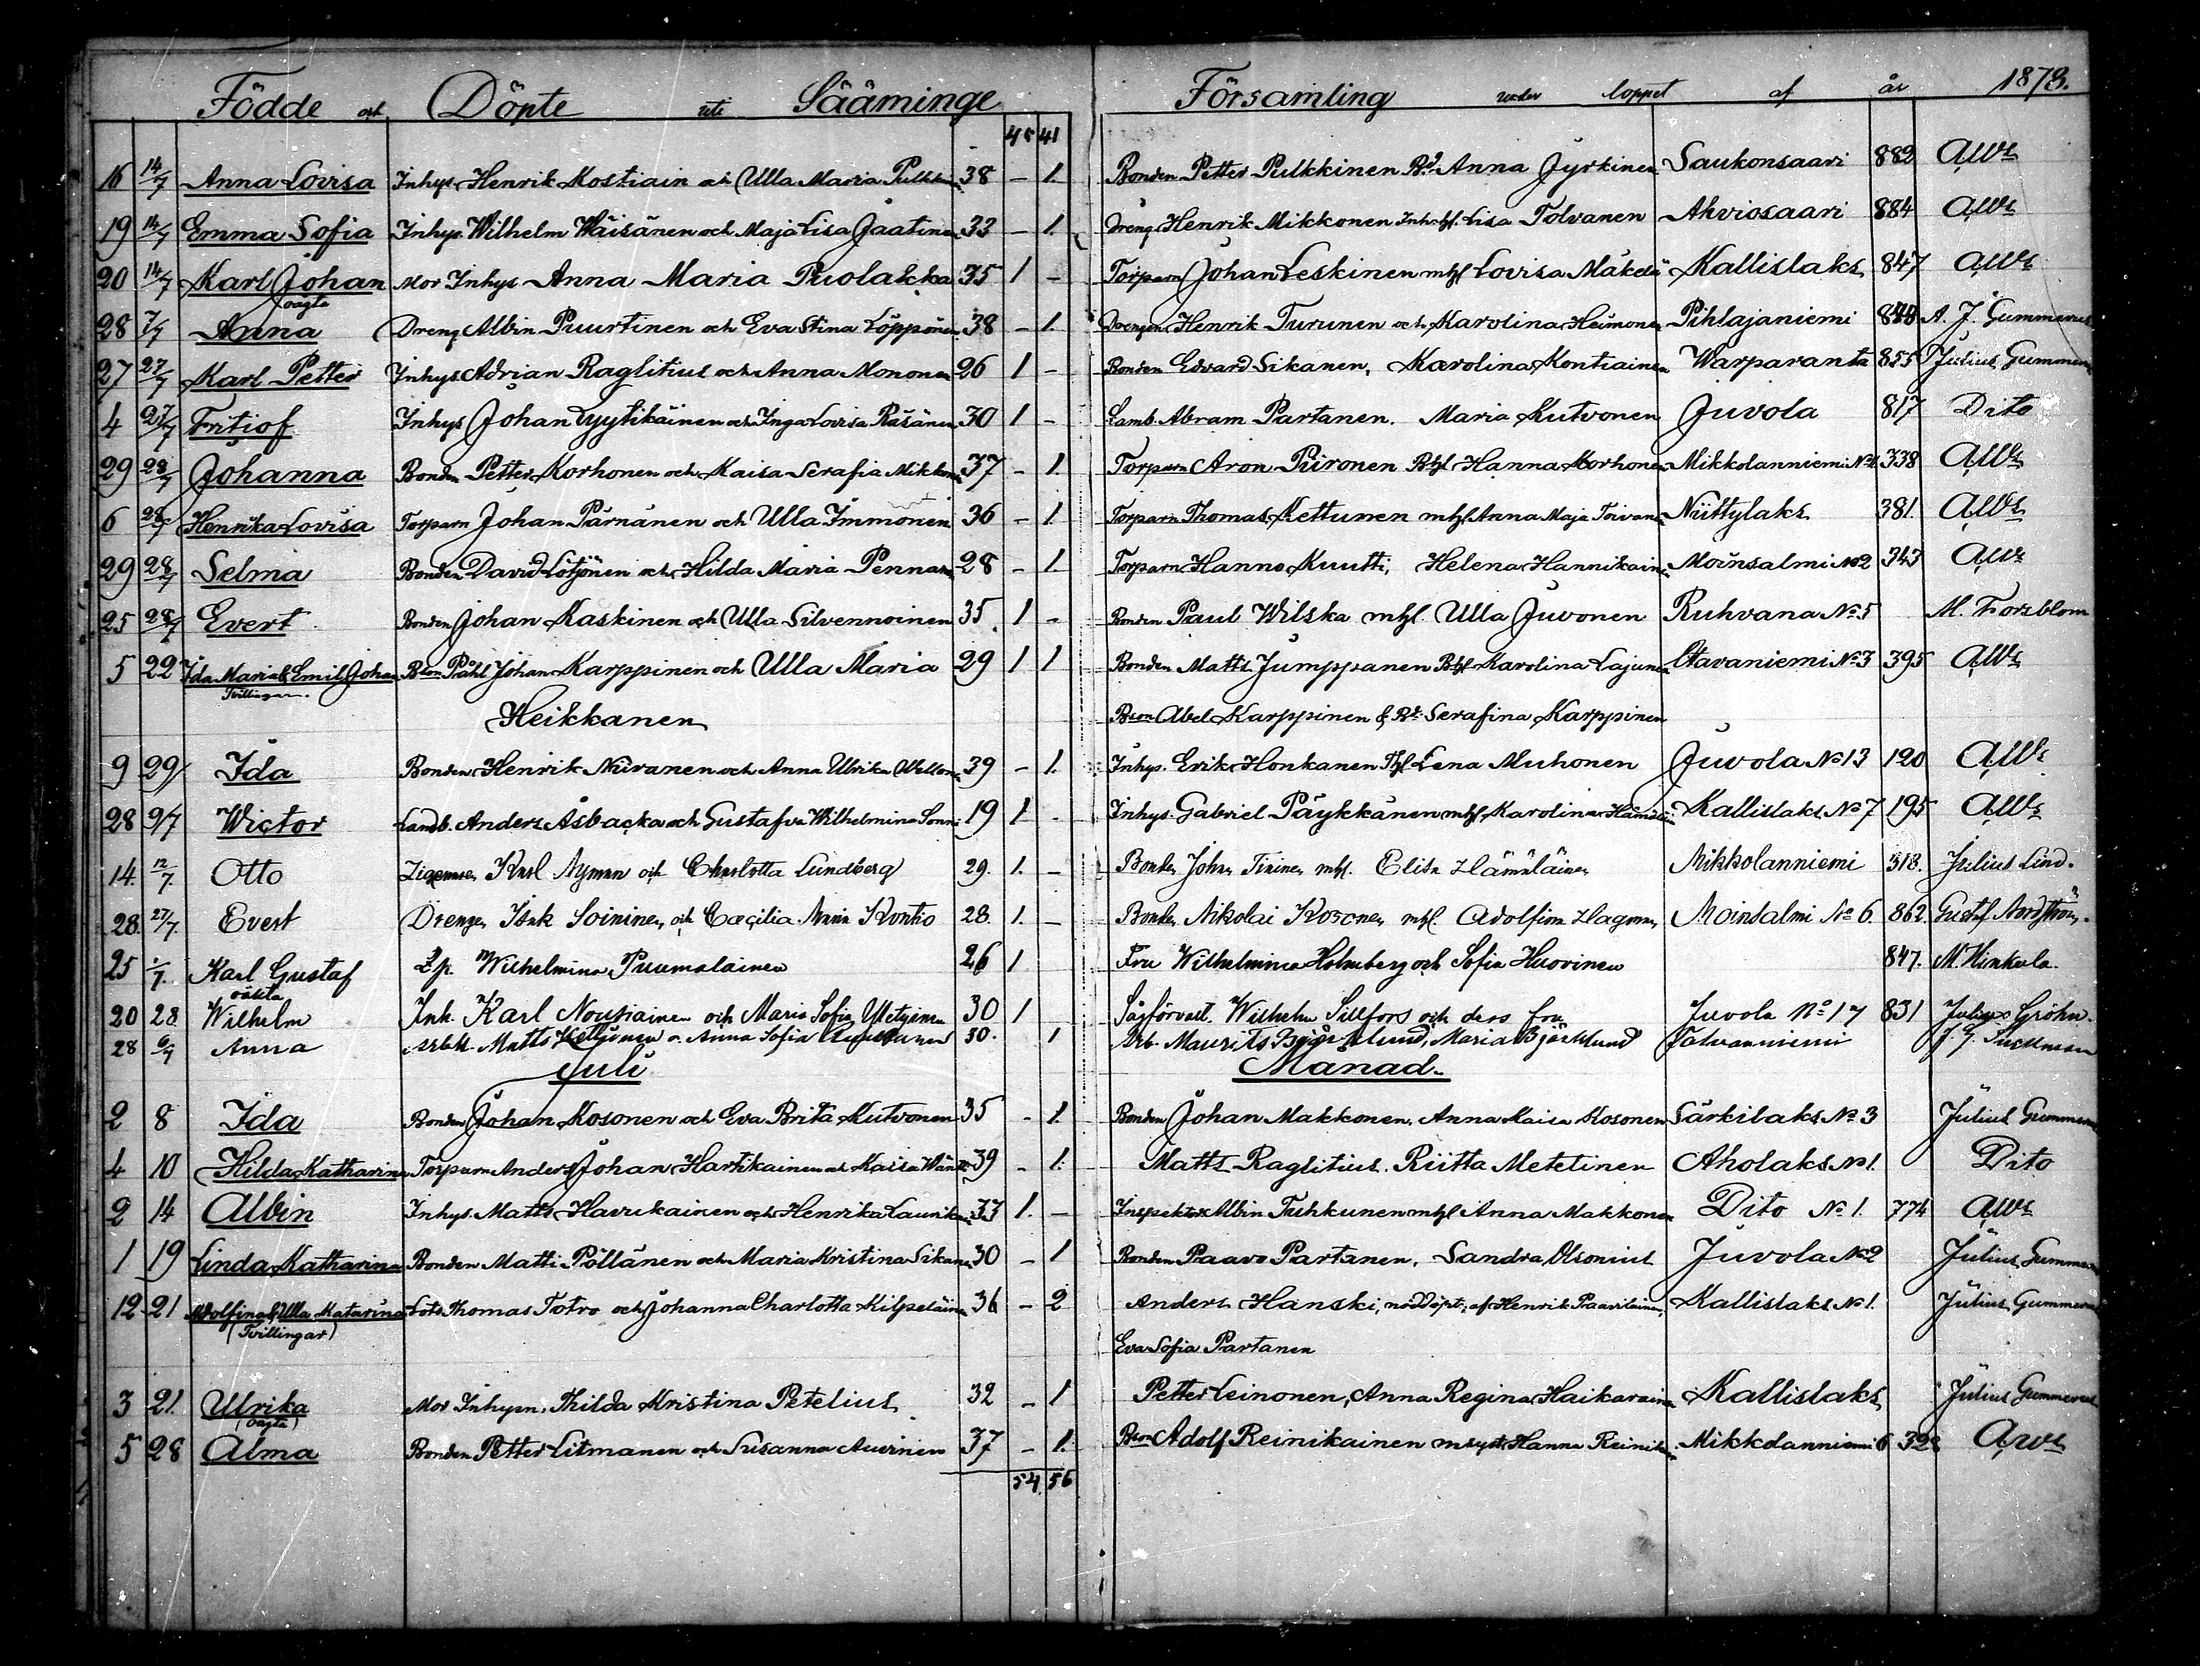 Födde och Döpte uti Sääminge Församling under loppet af år 1873.
45 41
16 14/7 Anna Lovisa Inhys Henrik Kostiain och Ulla Maria 38 - 1. Bonden Petter Pulkkinen Anna Jyrkinen Saukonsaari 882 AWr
19 14/7 Emma Sofia Inhys Wilhelm Wäisänen och Maja Lisa Jaatinen 33 - 1. Dreng Henrik Mikkonen Lisa Tolvanen Ahviosaari 884 AWr
20 14/7 Karl Johan oägta Mor Inhys Anna Maria Puolakka 35 1 - Torparn Johan Leskinen mhl Lovisa Mäkelä Kallislaks 847 AWr
28 7/7 Anna Dreng Albin Puurtinen och Eva Stina Löppönen 38 - 1. Drengen Henrik Turunen och Karolina Heimonen Pihlajaniemi A. J. Gummerus
27 27/7 Karl Petter Inhys Adrian Raglitius och Anna Mononen 26 1 - Bonden Edvard Sikanen, Karolina Kontiainen Warparanta 855 Julius Gummerus
4 27/7 Fritiof Inhys Johan Lyytikäinen och Inga Lovisa Räsänen 30 1 - Lamb. Abram Partanen. Maria Kutvonen Juvola 817 Dito
29 28/7 Johanna Bonden Petter Korhonen och Kaisa Serafia 37 - 1. Torparn Aron Piironen Hanna Korhonen Mikkolanniemi 338 AWr
6 28/7 Henrika Lovisa Torparn Johan Pärnänen och Ulla Immonen 36 - 1. Torparn Thomas Kettunen mhl Anna Maja Toivanen Niittylaks 381 AWr
29 28/7 Selma Bonden David Lötjönen och Hilda Maria Pennanen 28 - 1. Torparn Hanno Kuutti, Helena Hannikainen Moinsalmi No 2 343 AWr
25 28/7 Evert Bonden Johan Kaskinen och Ulla Silvennoinen 35 1 - Bonden Paul Wilska mhl. Ulla Juvonen Ruhvana No 5 M. Forsblom
5 22 Ida Maria & Emil Johan Tvillingar. Bson Påhl Johan Karppinen och Ulla Maria 29 1 1 Bonden Matts Jumppanen Bhl Karolina Lajunen Otavaniemi No 3 395 AWr
Heikkanen Bson Abel Karppinen & Serafina Karppinen
9 29/ Ida Bonden Henrik Niiranen och Anna Ulrika 39 - 1. Inhys. Erik Honkanen Lena Muhonen Juvola No 13 120 AWr
28 9/7 Wictor Landb. Anders Åsbacka och Gustafva Wilhelmina 19 1 - Inhys. Gabriel Päykkänen mhl Karolina Kallislaks No 7 195 AWr
14. 12/7. Otto Zigenare Karl Nyman och Charlotta Lundberg 29. 1. - Bonden Johan Tiainen mhl. Elisa Hämäläinen Mikkolanniemi 318. Julius Lind.
28. 27/7. Evert Drengen Isak Soininen och Cæcilia Maria Kontio 28. 1. - Bonden Nikolai Kosonen mhl. Adolfina Hagman Moinsalmi No 6. 862. Gustaf Nordström.
25 1/7. Karl Gustaf oäkta Wilhelmina Puumalainen 26 1 Fru Wilhelmina Holmberg och Sofia Huovinen 847. M. Hinkula.
20 28 Wilhelm Inh. Karl Nousiainen och Maria Sofia 30 1 Sågförvalt. Wilhelm Sillfors och dess fru Juvola No 17 831 Julius Gröhn.
28 6/7 Anna Arbet. Matts o. Anna Sofia 30. 1 Arb. Maurits Björklund, Maria Björklund
Juli Månad.
2 8 Ida Bonden Johan Kosonen och Eva Brita Kutvonen 35 - 1. Bonden Johan Makkonen. Anna Kaisa Kosonen Särkilaks No 3 Julius Gummerus
4 10 Hilda Katharina Torparn Anders Johan Hartikainen och Kaisa 39 - 1. Matts Raglitius. Riitta Metetinen Aholaks No 1. Dito
2 14 Albin Inhys. Matts Havukainen och Henrika 33 1. - Inspektor Albin Tuhkunen mhl Anna Makkonen Dito No 1. 774 AWr
1 19 Linda Katharina Bonden Matti Pöllänen och Maria Kristina Sikanen 30 - 1 Bonden Paavo Partanen. Sandra Olsonius Juvola No 2 Julius Gummerus
12 21 Adolfina & Ulla Katarina (Tvillingar) Lots Thomas Totro och Johanna Charlotta Kilpeläinen 36 - 2 Anders Hanski, nöddöpt, af Henrik Paavilainen, Kallislaks No 1. Julius Gummerus
Eva Sofia Partanen
3 21. Ulrika (oägta) Mor Inhysn. Thilda Kristina Petelius 32 - 1 Petter Leinonen, Anna Regina Haikarainen Kallislaks Julius Gummerus
5 28 Alma Bonden Petter Litmanen och Susanna Auvinen 37 - 1. Bson Adolf Reinikainen Hanna Mikkolanniemi 6 AWr
54. 56